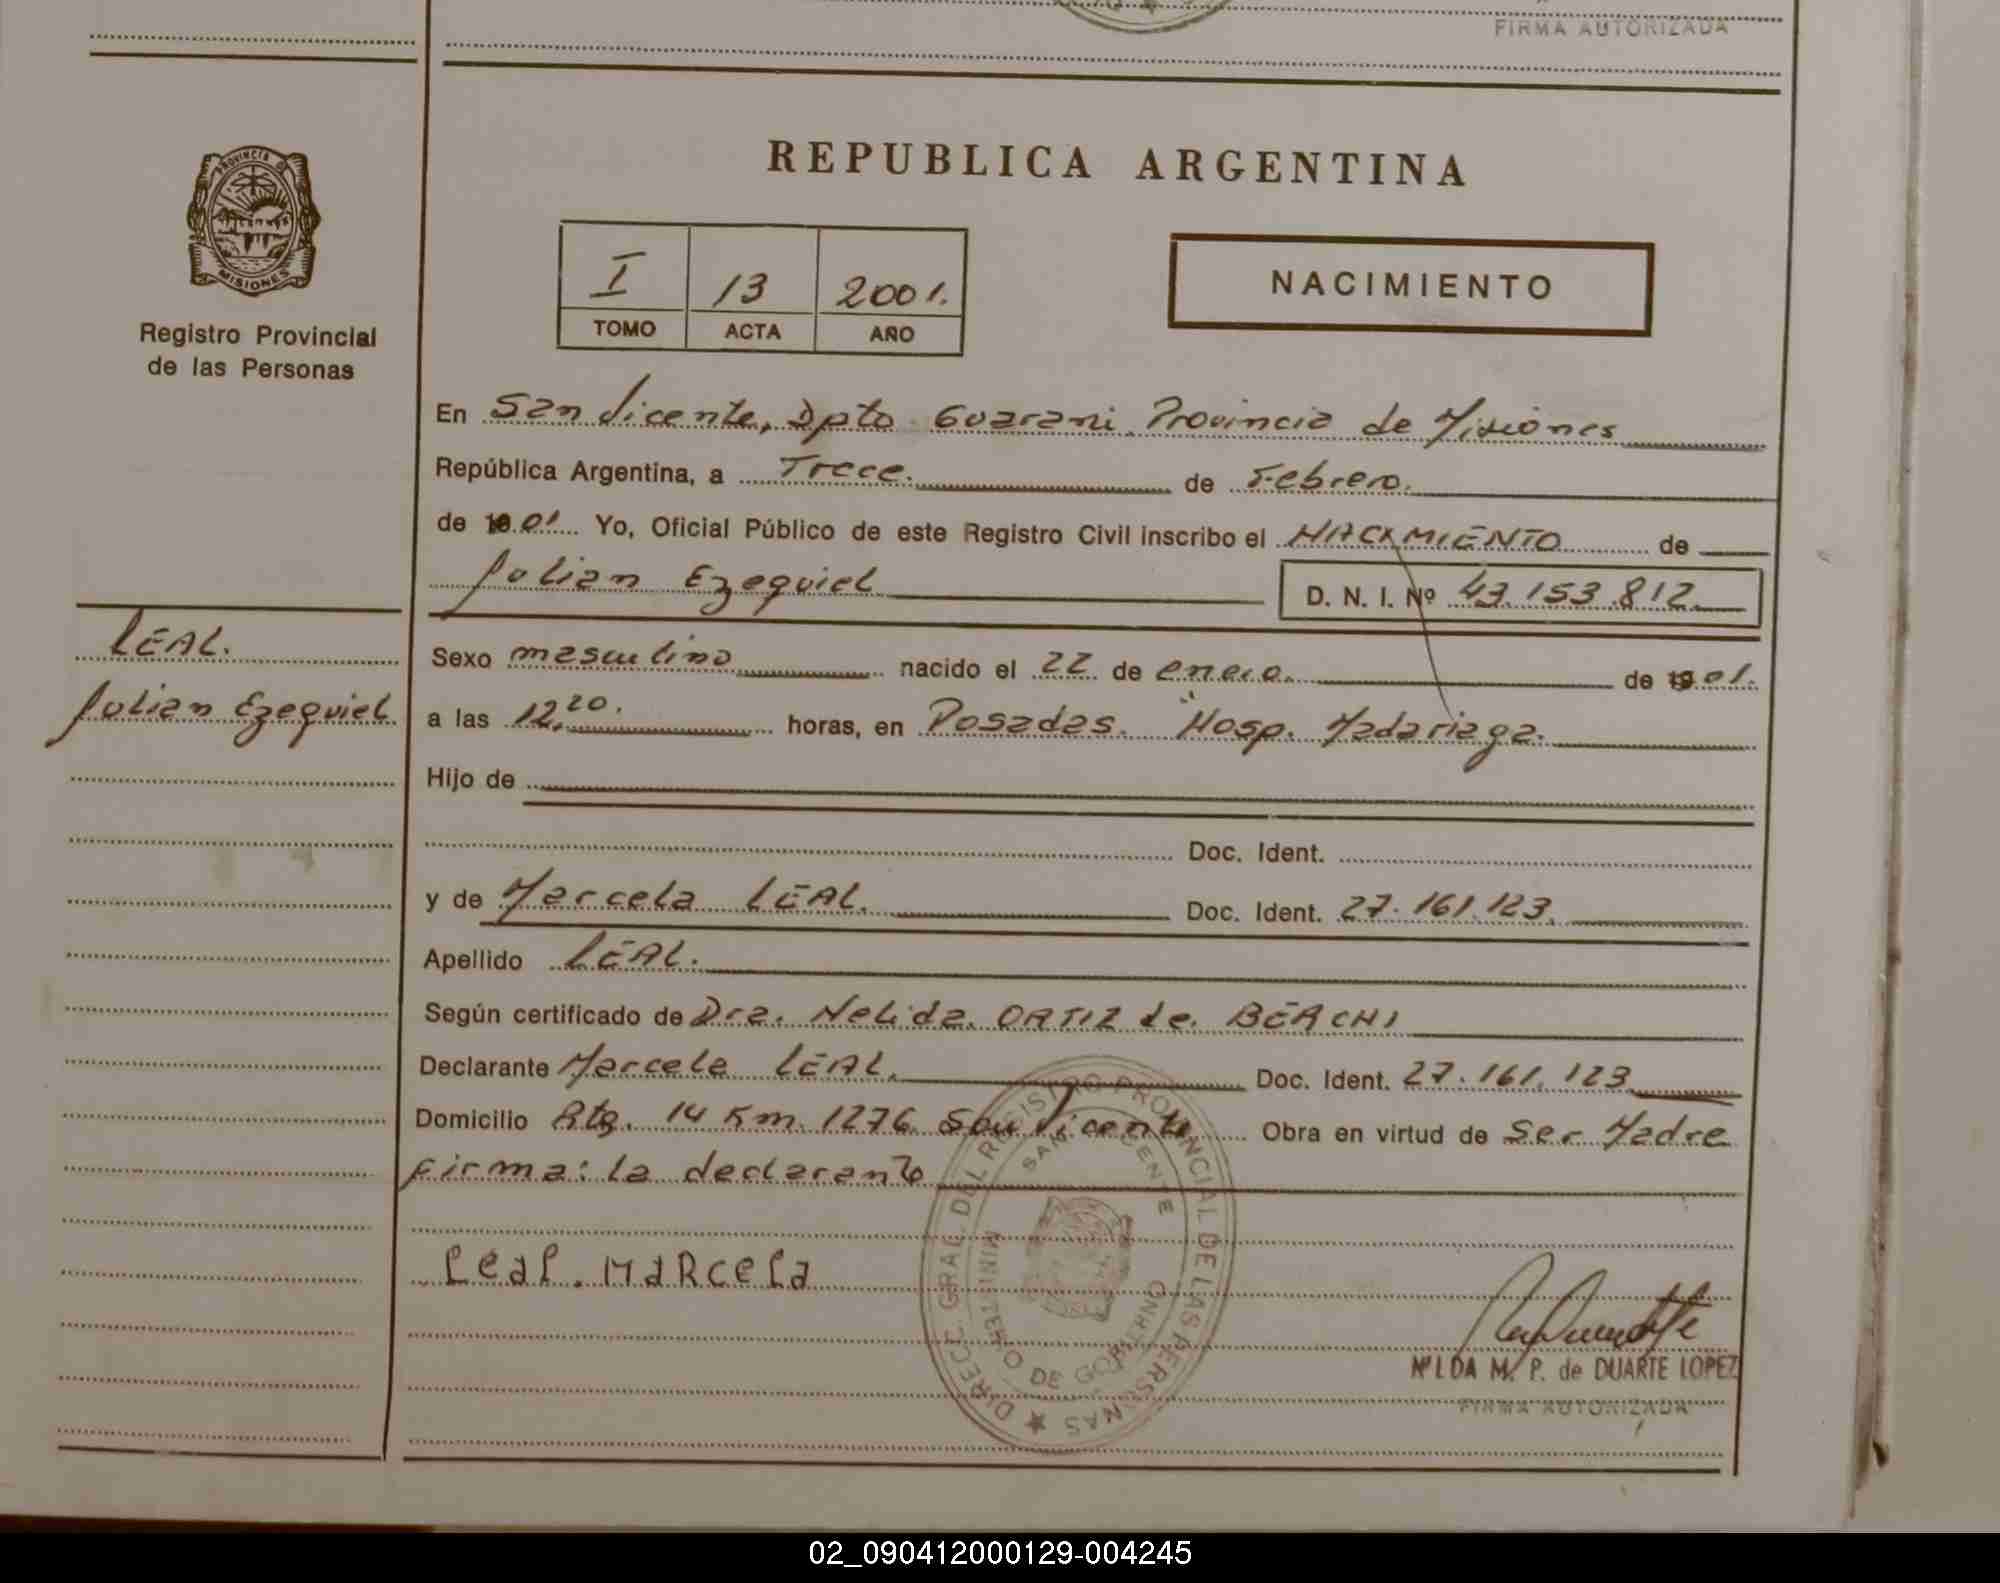 FIRMA AUTORIZADA
PROVINCIA DE
MISIONES
Registro Provincial
de las Personas
REPUBLICA ARGENTINA
I 13 2001.
TOMO ACTA AÑO
NACIMIENTO
En San Vicente, Dpto Guarani Provincia de Misiones
República Argentina, a Trece. de Febrero.
de 01 Yo, Oficial Público de este Registro Civil inscribo el NACIMIENTO de
Julian Ezequiel D. N. I. Nº 43.153.812
LEAL.
Julian Ezequiel
Sexo masculino nacido el 22 de enero. de 01.
a las 12,20. horas, en Posadas. Hosp. Madariaga.
Hijo de
Doc. Ident.
y de Marcela LEAL. Doc. Ident. 27.161.123.
Apellido LEAL.
Según certificado de Dra. Nelida ORTIZ de BERCHI
Declarante Marcela LEAL. Doc. Ident. 27.161.123
Domicilio Rta. 14 Km. 1276 San Vicente Obra en virtud de Ser Madre
Firma: la declarante
Leal. Marcela
DIRECC. GRAL. DEL REGISTRO PROVINCIAL DE LAS PERSONAS
SAN VICENTE
MINISTERIO DE GOBIERNO
NILDA M. P. de DUARTE LOPEZ
FIRMA AUTORIZADA
02_090412000129-004245